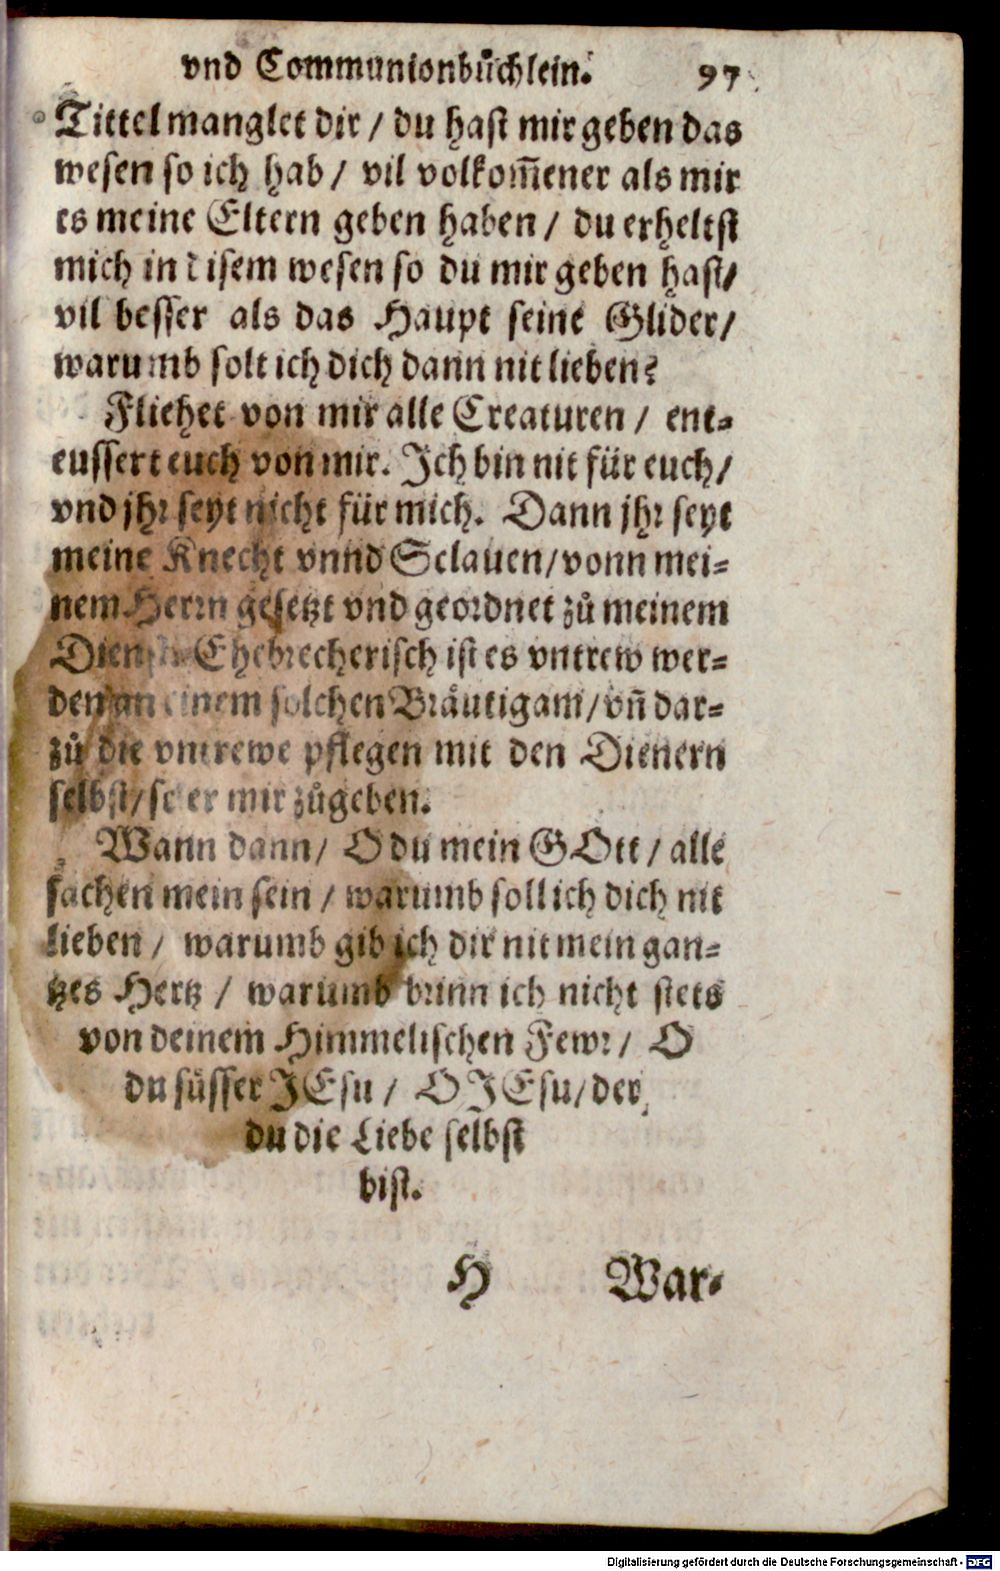 vnd Communionbůchlein. 97
Tittel manglet dir / du hast mir geben das
wesen so ich hab / vil volkom̃ener als mir
es meine Eltern geben haben / du erheltst
mich in disem wesen so du mir geben hast/
vil besser als das Haupt seine Glider/
warumb solt ich dich dann nit lieben?
Fliehet von mir alle Creaturen / ent-
eussert euch von mir. Ich bin nit für euch/
vnd jhr seyt nicht für mich. Dann jhr seyt
meine Knecht vnnd Sclauen/vonn mei-
nem Herrn gesetzt vnd geordnet zů meinem
Dienst. Ehebrecherisch ist es vntrew wer-
den an einem solchen Bräutigam/vñ dar-
zů die vntrewe pflegen mit den Dienern
selbst/so er mir zůgeben.
Wann dann/ O du mein GOtt / alle
sachen mein sein / warumb soll ich dich nit
lieben / warumb gib ich dir nit mein gan-
tzes Hertz / warumb brinn ich nicht stets
von deinem Himmelischen Fewr / O
du süsser JEsu / O JEsu/der
du die Liebe selbst
bist.
H War-
Digitalisierung gefördert durch die Deutsche Forschungsgemeinschaft - DFG